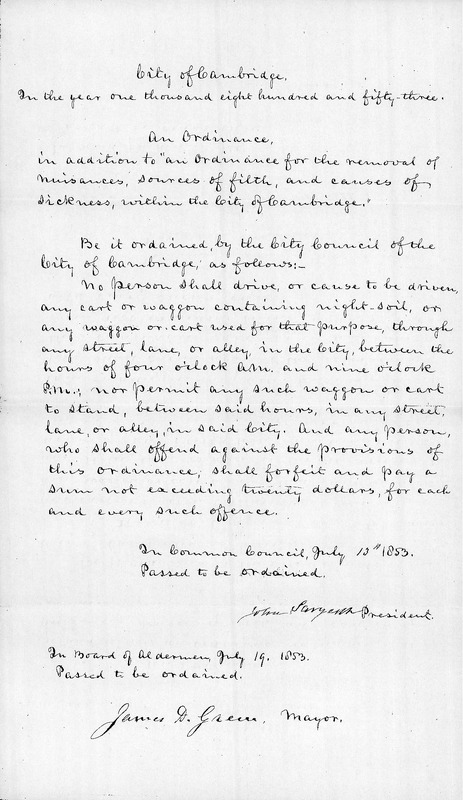 City of Cambridge.
In the year one thousand eight hundred and fifty-three.
An Ordinance,
in addition to "an Ordinance for the removal of
nuisances, sources of filth, and causes of
sickness, within the City of Cambridge."
Be it ordained, by the City Council of the
City of Cambridge, as follows:-
No person shall drive, or cause to be driven,
any cart or waggon containing night-soil, or
any waggon or cart used for that purpose, through
any street, lane, or alley, in the City, between the
hours of four o'clock A.M. and nine o'clock
P.M.; nor permit any such waggon or cart
to stand, between said hours, in any street,
lane, or alley, in said City. And any person,
who shall offend against the provisions of
this ordinance, shall forfeit and pay a
sum not exceeding twenty dollars, for each
and every such offence.
In Common Council, July 1853.
Passed to be ordained.
John Sargent President.
In Board of Aldermen, July 19. 1853.
Passed to be ordained.
James D. Green, Mayor.